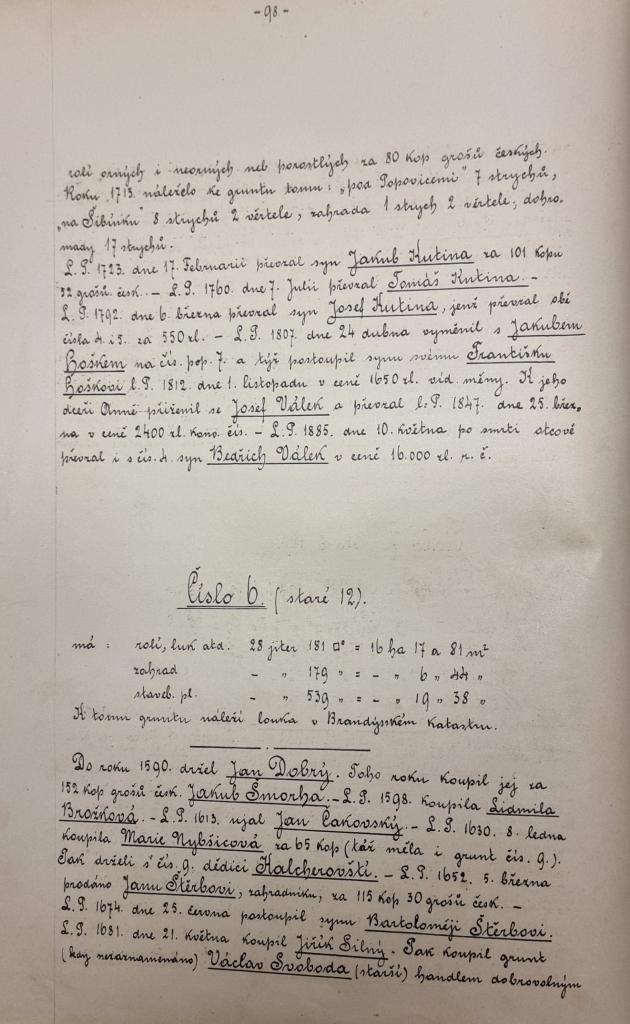 - 98. -
rolí orných i neorných neb porostlých za 80 kop grošů českých.
Roku 1713. náleželo ke gruntu tomu: „pod Popovicemi" 7 strychů,
„na Šibínku" 8 strychů 2 věrtele, zahrada 1 strych 2 věrtele; dohro-
mady 17 strychů.
L. P. 1723. dne 17. Februarii převzal syn Jakub Kutina za 101 kopu
52 grošů. česk. - L. P. 1760. dne 7. Julii převzal Tomáš Kutina. -
L. P. 1792. dne 6. března převzal syn Josef Kutina, jenž převzal obě
čísla 4. i 5. za 550 zl. - L. P. 1807. dne 24 dubna vyměnil s Jakubem
Boškem na čís. pop. 7. a týž postoupil synu svému Františku
Boškovi l. P. 1812. dne 1. listopadu v ceně 1650 zl. víd. měny. K jeho
dceři Anně přiženil se Josef Válek a převzal l. P. 1847. dne 25. břez-
na v ceně 2400 zl. konv. čís. - L. P. 1885. dne 10. května po smrti otcově
převzal i s čís. 4. syn Bedřich Válek v ceně 16.000 zl. r. č.
Číslo 6. (staré 12).
má: rolí, luk atd. 28 jiter 181 □° = 16 ha 17 a 81 m²
zahrad - „ 179 „ = - „ 6 „ 44 „
staveb. pl. - „ 539 „ = - „ 19 „ 38 „
K tomu gruntu náleží louka v Brandýsském katastru.
Do roku 1590. držel Jan Dobrý. Toho roku koupil jej za
152 kop grošů česk. Jakub Šmorha. - L. P. 1598. koupila Lidmila
Brožková. - L. P. 1613. ujal Jan Čakovský. - L. P. 1630. 8. ledna
koupila Marie Nybšicová za 65 kop (též měla i grunt čís. 9.).
Pak drželi s čís. 9. dědici Kalcherovští. - L. P. 1652. 5. března
prodáno Janu Štěrbovi, zahradníku, za 115 kop 30 grošů česk. -
L. P. 1674. dne 25. června postoupil synu Bartoloměji Štěrbovi.
L. P. 1681. dne 21. května koupil Jiřík Silný. Pak koupil grunt
(kdy nezaznamenáno) Václav Svoboda (starší) handlem dobrovolným